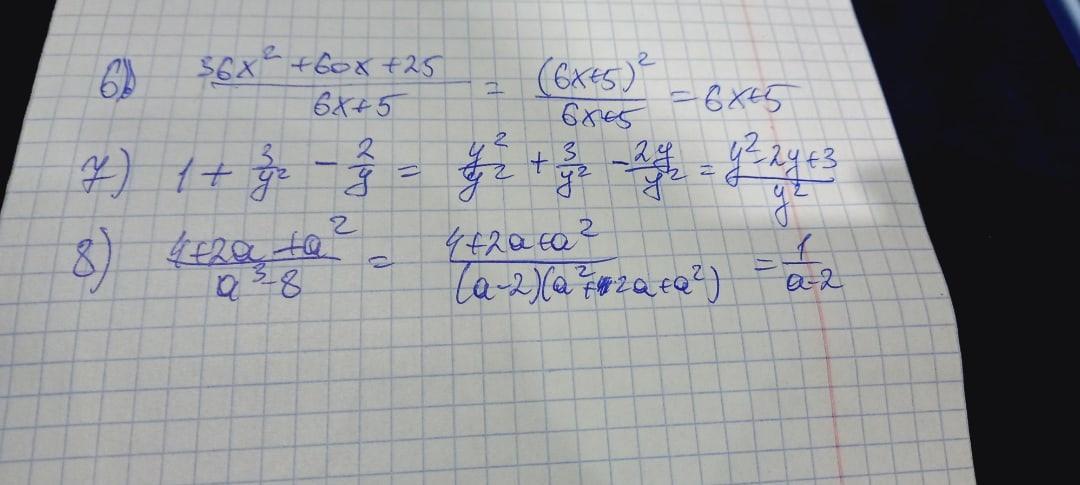 6) (36x² + 60x + 25)/(6x + 5) = (6x+5)²/(6x+5) = 6x+5
7) 1 + 3/y² - 2/y = y²/y² + 3/y² - 2y/y² = (y² - 2y + 3)/y²
8) (4 + 2a + a²)/(a³ - 8) = (4 + 2a + a²)/((a - 2)(a² + 2a + a²)) = 1/(a - 2)